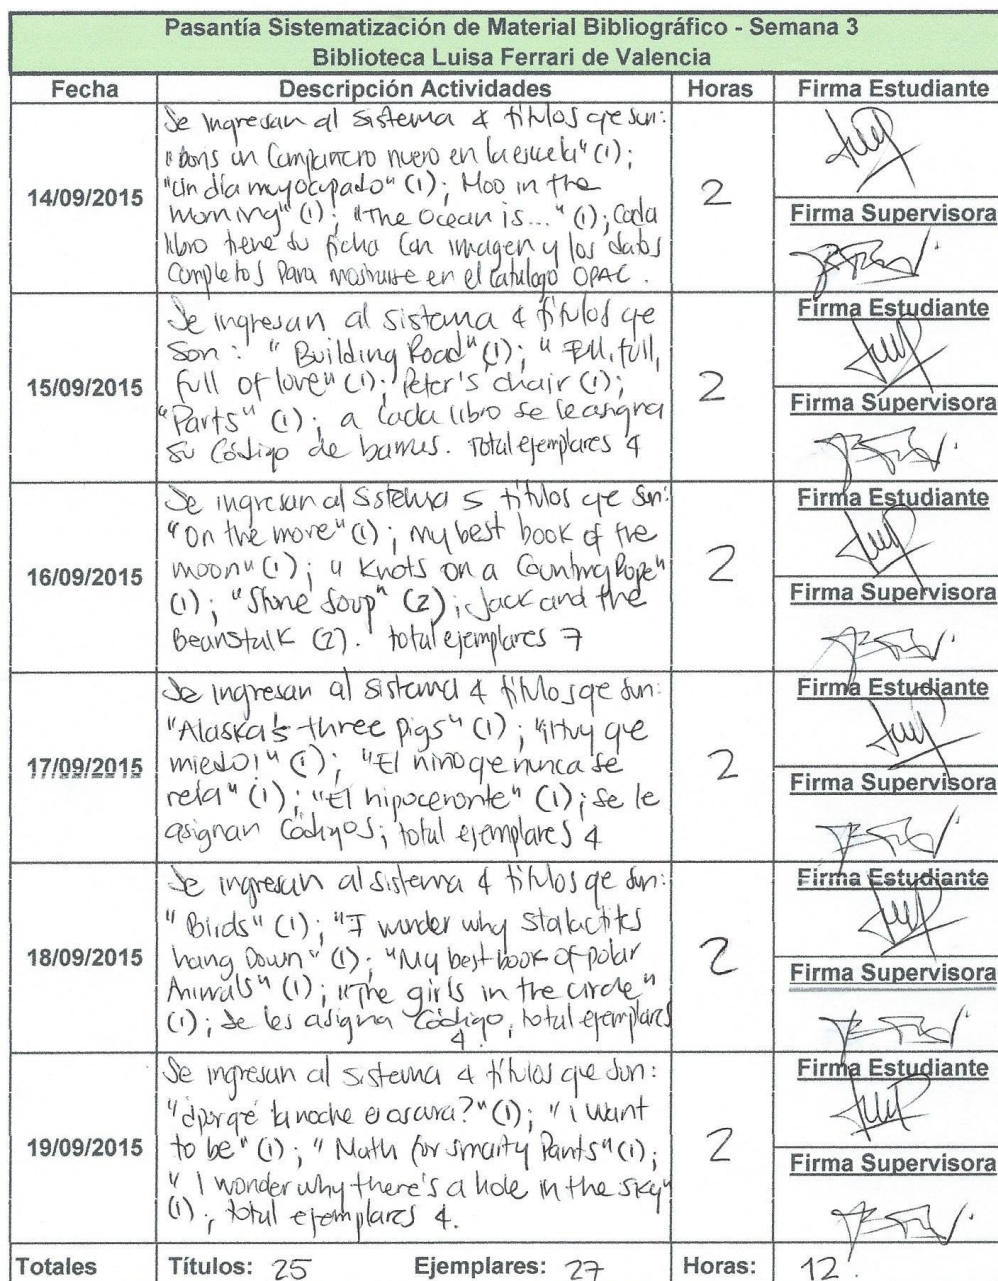 Pasantía Sistematización de Material Bibliográfico - Semana 3
Biblioteca Luisa Ferrari de Valencia
Fecha Descripción Actividades Horas Firma Estudiante
14/09/2015
Se ingresan al sistema 4 títulos qe son:
un Compañero nuevo en la escuela" (1);
"Un día muy ocupado" (1); Moo in the
morning" (1); "The Ocean is..." (1); Cada
libro tiene su ficha Con imagen y los datos
Completos Para mostrarse en el catalogo OPAC.
2
Firma Supervisora
15/09/2015
Se ingresan al sistema 4 títulos qe
Son: "Building Road" (1); "Full, full,
full of love" (1); Peter's chair (1);
"Parts" (1); a Cada libro se le asigna
su Código de barras. Total ejemplares 4
2
Firma Estudiante
Firma Supervisora
16/09/2015
Se ingresan al Sistema 5 títulos qe son:
"On the move" (1); my best book of the
moon" (1); "Knots on a Counting Rope"
(1); "Stone Soup" (2); Jack and the
Beanstalk (2). total ejemplares 7
2
Firma Estudiante
Firma Supervisora
17/09/2015
Se ingresan al sistema 4 títulos qe son:
"Alaska's three pigs" (1); "¡Huy qe
miedo!" (1); "El niño qe nunca se
reía" (1); "El hipoceronte" (1); Se le
asignan Códigos; total ejemplares 4
2
Firma Estudiante
Firma Supervisora
18/09/2015
Se ingresan al sistema 4 títulos qe son:
"Birds" (1); "I wonder why Stalactites
hang Down" (1); "My best book of polar
Animals" (1); "The girls in the circle"
(1); Se les asigna Código, total ejemplares
4.
2
Firma Estudiante
Firma Supervisora
19/09/2015
Se ingresan al sistema 4 títulos que son:
"¿porqé la noche es oscura?" (1); "i want
to be" (1); "Math for smarty Pants" (1);
"I wonder why there's a hole in the sky"
(1); total ejemplares 4.
2
Firma Estudiante
Firma Supervisora
Totales Títulos: 25 Ejemplares: 27 Horas: 12